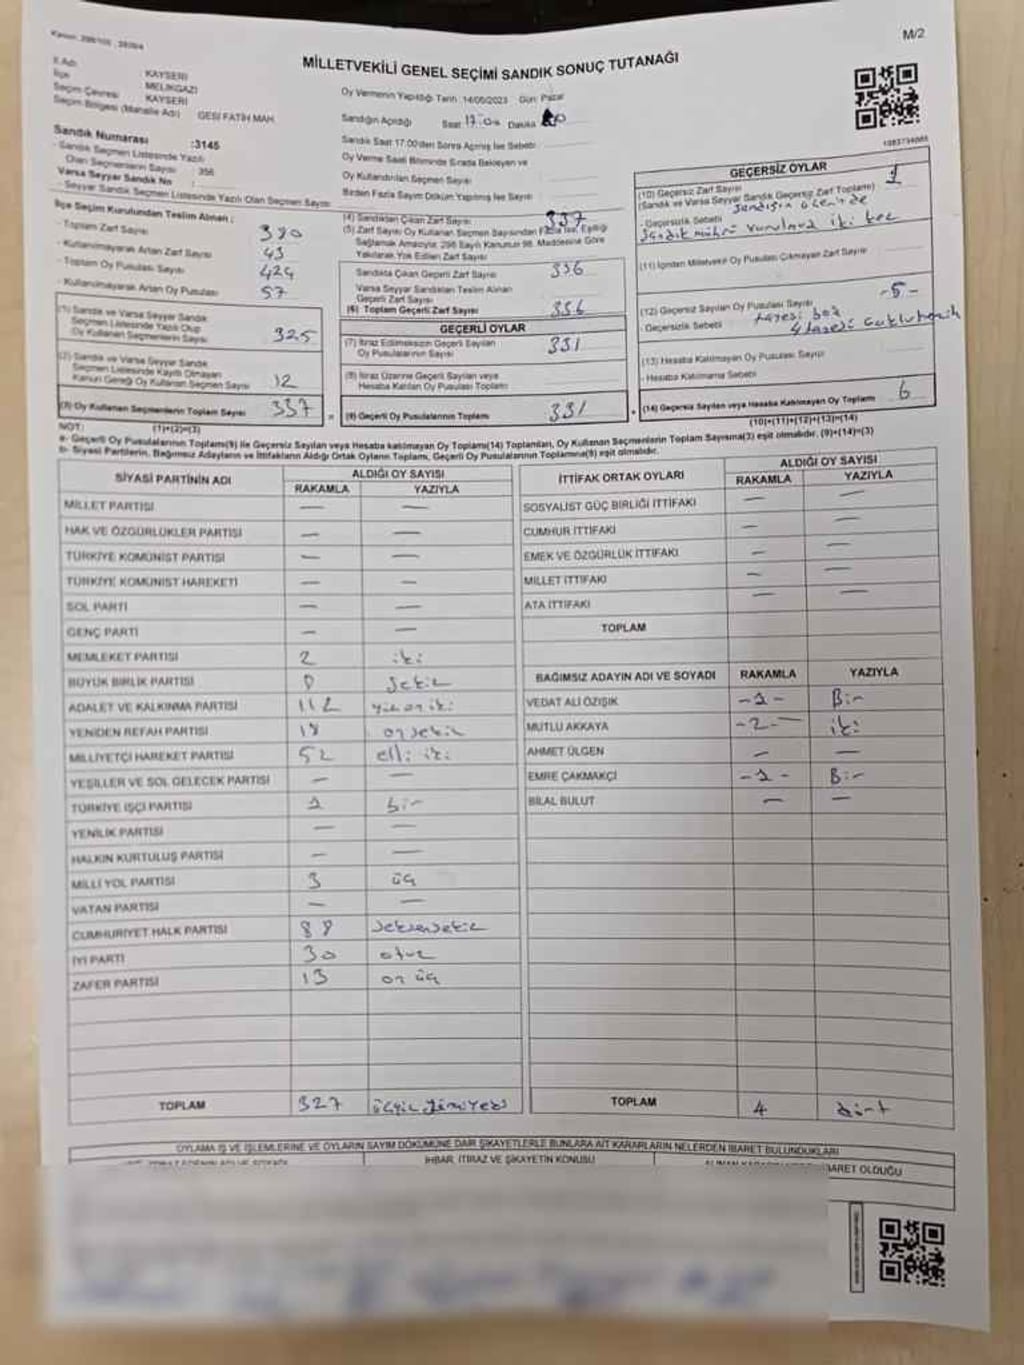 Kanun: 298/105 , 2839/4
M/2
MİLLETVEKİLİ GENEL SEÇİMİ SANDIK SONUÇ TUTANAĞI
İl Adı : KAYSERİ
İlçe : MELİKGAZİ
Seçim Çevresi : KAYSERİ
Seçim Bölgesi (Mahalle Adı) : GESİ FATİH MAH.
Sandık Numarası : 3145
- Sandık Seçmen Listesinde Yazılı
Olan Seçmenlerin Sayısı : 356
Varsa Seyyar Sandık No :
- Seyyar Sandık Seçmen Listesinde Yazılı Olan Seçmen Sayısı:
İlçe Seçim Kurulundan Teslim Alınan ;
- Toplam Zarf Sayısı 380
- Kullanılmayarak Artan Zarf Sayısı 43
- Toplam Oy Pusulası Sayısı 424
- Kullanılmayarak Artan Oy Pusulası 57
(1) Sandık ve Varsa Seyyar Sandık
Seçmen Listesinde Yazılı Olup
Oy Kullanan Seçmenlerin Sayısı 325
(2) Sandık ve Varsa Seyyar Sandık
Seçmen Listesinde Kayıtlı Olmayan
Kanun Gereği Oy Kullanan Seçmen Sayısı 12
(3) Oy Kullanan Seçmenlerin Toplam Sayısı 337
(1)+(2)=(3)
Oy Vermenin Yapıldığı Tarih :14/05/2023 Gün: Pazar
Sandığın Açıldığı Saat 17:04 Dakika
Sandık Saat 17.00'den Sonra Açılmış İse Sebebi:
Oy Verme Saati Bitiminde Sırada Bekleyen ve
Oy Kullandırılan Seçmen Sayısı :
Birden Fazla Sayım Döküm Yapılmış İse Sayısı :
(4) Sandıktan Çıkan Zarf Sayısı : 337
(5) Zarf Sayısı Oy Kullanan Seçmen Sayısından Fazla İse, Eşitliği
Sağlamak Amacıyla; 298 Sayılı Kanunun 98. Maddesine Göre
Yakılarak Yok Edilen Zarf Sayısı :
Sandıkta Çıkan Geçerli Zarf Sayısı 336
Varsa Seyyar Sandıktan Teslim Alınan
Geçerli Zarf Sayısı
(6) Toplam Geçerli Zarf Sayısı 336
GEÇERLİ OYLAR
(7) İtiraz Edilmeksizin Geçerli Sayılan
Oy Pusulalarının Sayısı 331
(8) İtiraz Üzerine Geçerli Sayılan veya
Hesaba Katılan Oy Pusulası Toplamı
(9) Geçerli Oy Pusulalarının Toplamı 331
1083734865
GEÇERSİZ OYLAR
(10) Geçersiz Zarf Sayısı 1
(Sandık ve Varsa Seyyar Sandık Geçersiz Zarf Toplamı)
- Geçersizlik Sebebi
Sandık mührü vurulmuş iki kez
(11) İçinden Milletvekili Oy Pusulası Çıkmayan Zarf Sayısı
(12) Geçersiz Sayılan Oy Pusulası Sayısı -5-
- Geçersizlik Sebebi boş
(13) Hesaba Katılmayan Oy Pusulası Sayısı
- Hesaba Katılmama Sebebi
(14) Geçersiz Sayılan veya Hesaba Katılmayan Oy Toplamı 6
(10)+(11)+(12)+(13)=(14)
NOT:
a- Geçerli Oy Pusulalarının Toplamı(9) ile Geçersiz Sayılan veya Hesaba katılmayan Oy Toplamı(14) Toplamları, Oy Kullanan Seçmenlerin Toplam Sayısına(3) eşit olmalıdır. (9)+(14)=(3)
b- Siyasi Partilerin, Bağımsız Adayların ve İttifakların Aldığı Ortak Oyların Toplamı, Geçerli Oy Pusulalarının Toplamına(9) eşit olmalıdır.
SİYASİ PARTİNİN ADI ALDIĞI OY SAYISI
RAKAMLA YAZIYLA
MİLLET PARTİSİ — —
HAK VE ÖZGÜRLÜKLER PARTİSİ — —
TÜRKİYE KOMÜNİST PARTİSİ — —
TÜRKİYE KOMÜNİST HAREKETİ — —
SOL PARTİ — —
GENÇ PARTİ — —
MEMLEKET PARTİSİ 2 iki
BÜYÜK BİRLİK PARTİSİ 8 sekiz
ADALET VE KALKINMA PARTİSİ 112 yüz on iki
YENİDEN REFAH PARTİSİ 18 on sekiz
MİLLİYETÇİ HAREKET PARTİSİ 52 elli iki
YEŞİLLER VE SOL GELECEK PARTİSİ — —
TÜRKİYE İŞÇİ PARTİSİ 1 bir
YENİLİK PARTİSİ — —
HALKIN KURTULUŞ PARTİSİ — —
MİLLİ YOL PARTİSİ 3 üç
VATAN PARTİSİ — —
CUMHURİYET HALK PARTİSİ 88 seksensekiz
İYİ PARTİ 30 otuz
ZAFER PARTİSİ 13 on üç
TOPLAM 327 üçyüz yirmiyedi
İTTİFAK ORTAK OYLARI ALDIĞI OY SAYISI
RAKAMLA YAZIYLA
SOSYALİST GÜÇ BİRLİĞİ İTTİFAKI — —
CUMHUR İTTİFAKI — —
EMEK VE ÖZGÜRLÜK İTTİFAKI — —
MİLLET İTTİFAKI — —
ATA İTTİFAKI — —
TOPLAM
BAĞIMSIZ ADAYIN ADI VE SOYADI RAKAMLA YAZIYLA
VEDAT ALİ ÖZIŞIK -1- Bir
MUTLU AKKAYA -2- iki
AHMET ÜLGEN — —
EMRE ÇAKMAKÇI -1- Bir
BİLAL BULUT — —
TOPLAM 4 dört
OYLAMA İŞ VE İŞLEMLERİNE VE OYLARIN SAYIM DÖKÜMÜNE DAİR ŞİKAYETLERLE BUNLARA AİT KARARLARIN NELERDEN İBARET BULUNDUKLARI
İHBAR, İTİRAZ VE ŞİKAYETİN KONUSU
İBARET OLDUĞU